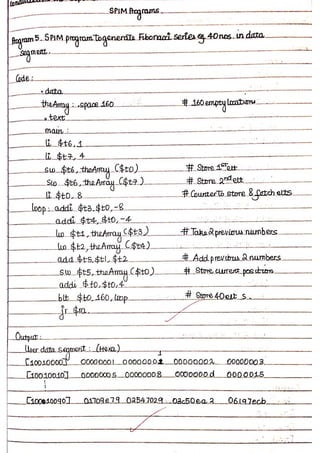 SPIM Programs.
Program 5. SPIM program to generate Fibonacci series of 40 nos. in data
segment.
Code :
.data
theArray : .space 160 # 160 empty locations
.text
main :
li $t6, 1
li $t7, 4
sw $t6, theArray ($t0) # Store 1st elt
sw $t6, theArray ($t7) # Store 2nd elt
li $t0, 8 # Counter to store & fetch elts
loop: addi $t3, $t0, -8
addi $t4, $t0, -4
lw $t1, theArray ($t3) # Take 2 previous numbers
lw $t2, theArray ($t4)
add $t5, $t1, $t2 # Add previous 2 numbers
sw $t5, theArray ($t0) # Store current position
addi $t0, $t0, 4
blt $t0, 160, loop # Store 40 elts.
jr $ra.
Output :
User data segment : (Hexa)
[10010000] 00000001 00000001 00000002 00000003
[10010010] 00000005 00000008 0000000d 0000015
[10010090] 01709e79 02547029 03c50ea2 06197ecb